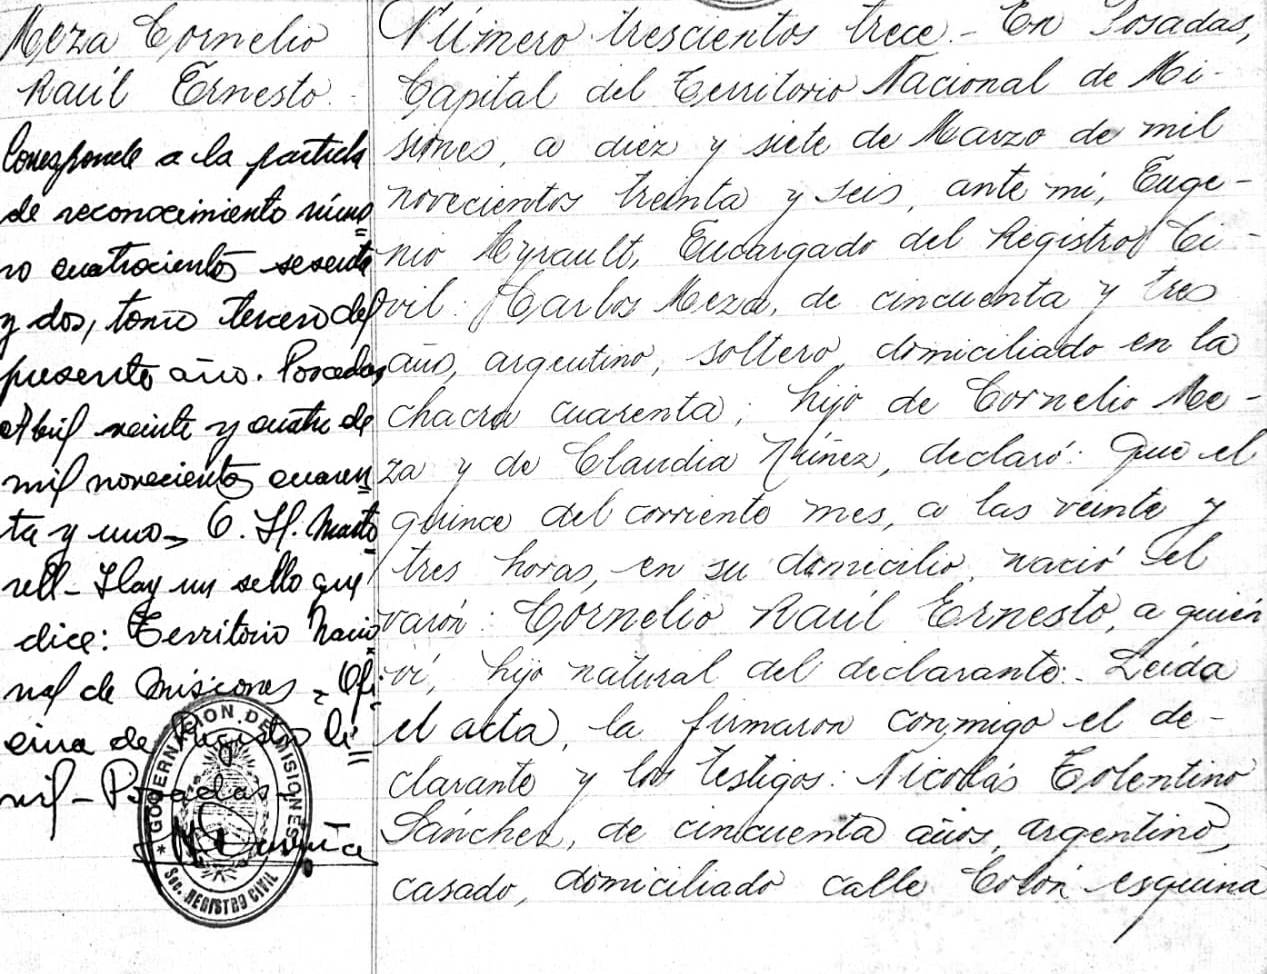 Meza Cornelio
Raúl Ernesto.
Corresponde a la partida
de reconocimiento núme
ro cuatrocientos sesenta
y dos, tomo tercero del
presente año. Posadas,
Abril veinte y cuatro de
mil novecientos cuaren
ta y uno - Hay un sello que
dice: Territorio Nacio
nal de Misiones - Ofi
cina de Registro Ci
vil - Posadas -
GOBERNACION DE MISIONES
Sec. REGISTRO CIVIL
Número trescientos trece.- En Posadas,
Capital del Territorio Nacional de Mi-
siones, a diez y siete de Marzo de mil
novecientos treinta y seis, ante mí, Euge-
nio Ayrault, Encargado del Registro Ci-
vil: Carlos Meza, de cincuenta y tres
años, argentino, soltero, domiciliado en la
chacra cuarenta; hijo de Cornelio Me-
za y de Claudia Núñez, declaró: Que el
quince del corriente mes, a las veinte y
tres horas, en su domicilio, nació el
varón: Cornelio Raúl Ernesto, a quien
ví, hijo natural del declarante.- Leída
el acta, la firmaron conmigo el de-
clarante y los testigos: Nicolás Tolentino
Sánchez, de cincuenta años, argentino,
casado, domiciliado calle Colón esquina